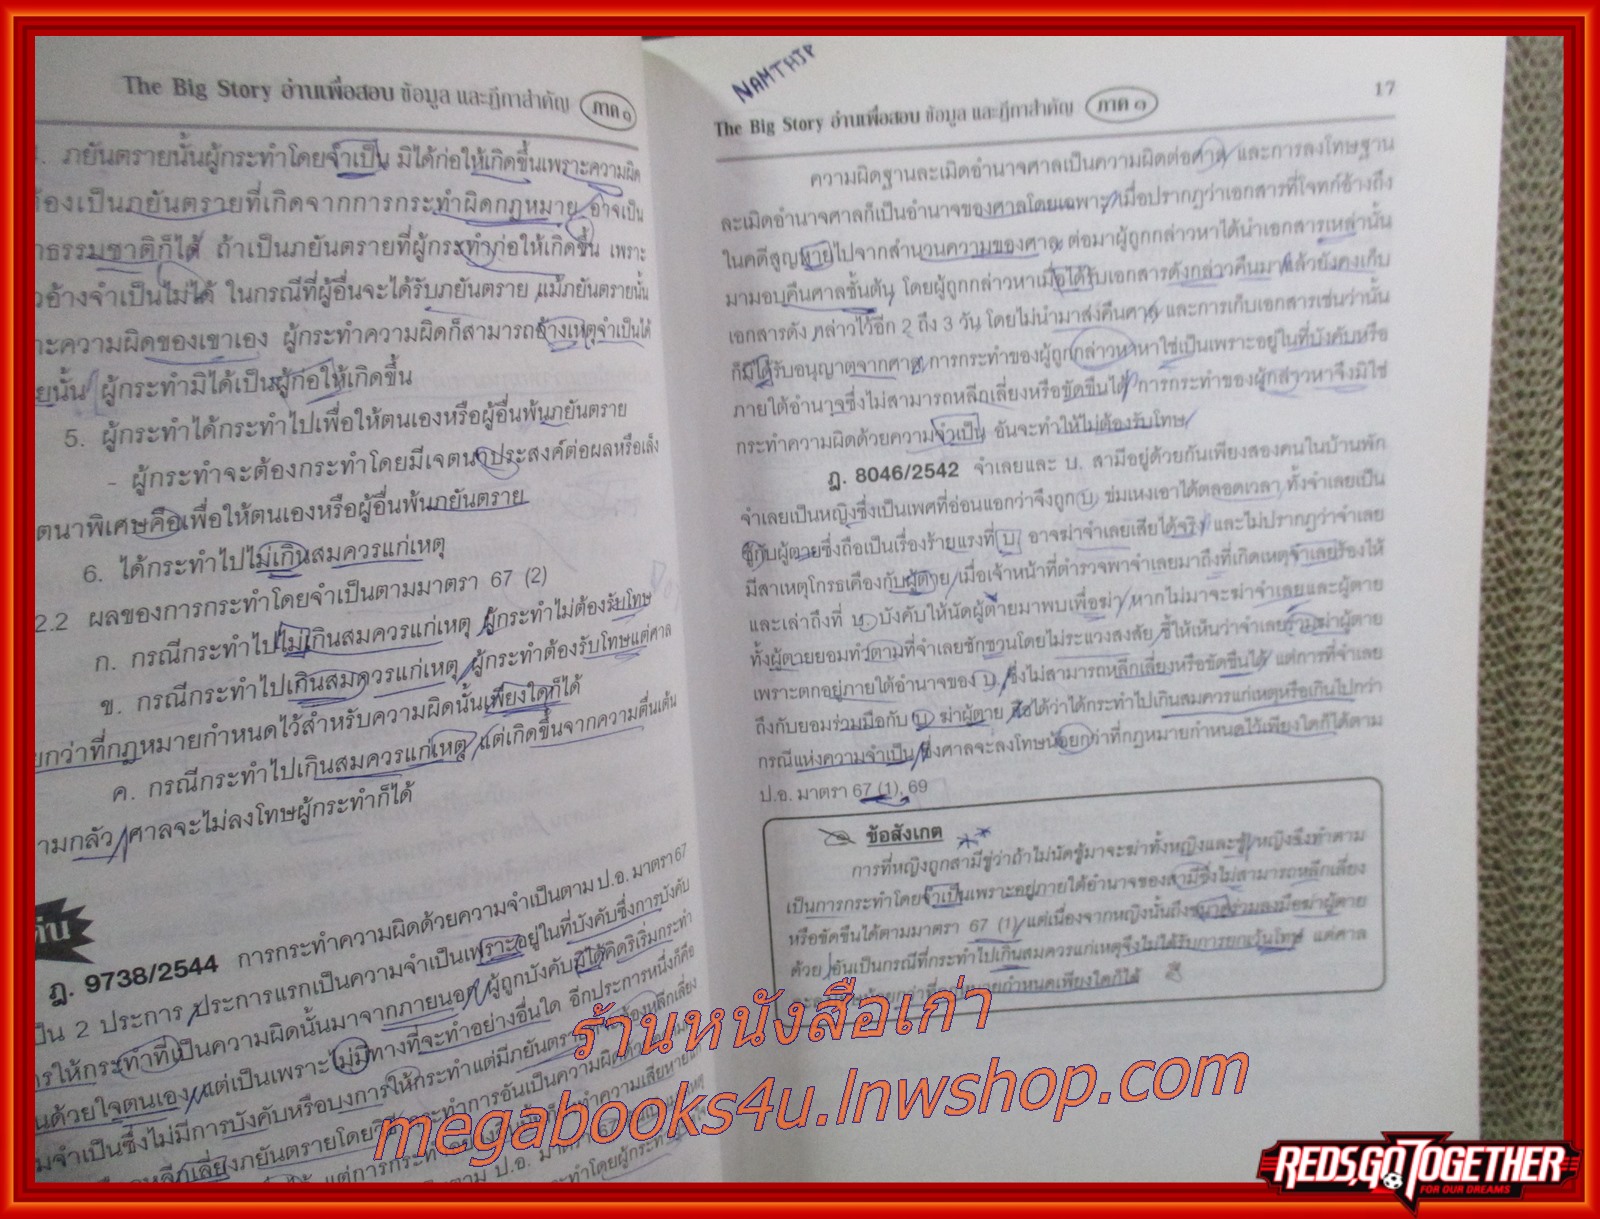 The Big Story อ่านเพื่อสอบ ข้อมูล และฎีกาสำคัญ ภาค ๑
ภยันตรายนั้นผู้กระทำโดยจำเป็น มิได้ก่อให้เกิดขึ้นเพราะความผิด
ต้องเป็นภยันตรายที่เกิดจากการกระทำผิดกฎหมาย อาจเป็น
ธรรมชาติก็ได้ ถ้าเป็นภยันตรายที่ผู้กระทำก่อให้เกิดขึ้น เพราะ
อ้างจำเป็นไม่ได้ ในกรณีที่ผู้อื่นจะได้รับภยันตราย แม้ภยันตรายนั้น
ะความผิดของเขาเอง ผู้กระทำความผิดก็สามารถอ้างเหตุจำเป็นได้
ยนั้น ผู้กระทำมิได้เป็นผู้ก่อให้เกิดขึ้น
5. ผู้กระทำได้กระทำไปเพื่อให้ตนเองหรือผู้อื่นพ้นภยันตราย
- ผู้กระทำจะต้องกระทำโดยมีเจตนาประสงค์ต่อผลหรือเล็ง
ตนาพิเศษคือเพื่อให้ตนเองหรือผู้อื่นพ้นภยันตราย
6. ได้กระทำไปไม่เกินสมควรแก่เหตุ
2.2 ผลของการกระทำโดยจำเป็นตามมาตรา 67 (2)
ก. กรณีกระทำไปไม่เกินสมควรแก่เหตุ ผู้กระทำไม่ต้องรับโทษ
ข. กรณีกระทำไปเกินสมควรแก่เหตุ ผู้กระทำต้องรับโทษแต่ศาล
ยกว่าที่กฎหมายกำหนดไว้สำหรับความผิดนั้นเพียงใดก็ได้
ค. กรณีกระทำไปเกินสมควรแก่เหตุ แต่เกิดขึ้นจากความตื่นเต้น
ามกลัว ศาลจะไม่ลงโทษผู้กระทำก็ได้
ฎ. 9738/2544 การกระทำความผิดด้วยความจำเป็นตาม ป.อ. มาตรา 67
ป็น 2 ประการ ประการแรกเป็นความจำเป็นเพราะอยู่ในที่บังคับซึ่งการบังคับ
ารให้กระทำที่เป็นความผิดนั้นมาจากภายนอก ผู้ถูกบังคับมิได้คิดริเริ่มกระทำ
นด้วยใจตนเอง แต่เป็นเพราะไม่มีทางที่จะทำอย่างอื่นใด อีกประการหนึ่งก็คือ
มจำเป็นซึ่งไม่มีการบังคับหรือบงการให้กระทำแต่มีภยันตราย
หลีกเลี่ยงภยันตรายโดย
NAMTHIP
The Big Story อ่านเพื่อสอบ ข้อมูล และฎีกาสำคัญ ภาค ๑ 17
ความผิดฐานละเมิดอำนาจศาลเป็นความผิดต่อศาล และการลงโทษฐาน
ละเมิดอำนาจศาลก็เป็นอำนาจของศาลโดยเฉพาะ เมื่อปรากฏว่าเอกสารที่โจทก์อ้างถึง
ในคดีสูญหายไปจากสำนวนความของศาล ต่อมาผู้ถูกกล่าวหาได้นำเอกสารเหล่านั้น
มามอบคืนศาลชั้นต้น โดยผู้ถูกกล่าวหาเมื่อได้รับเอกสารดังกล่าวคืนมาแล้วยังคงเก็บ
เอกสารดังกล่าวไว้อีก 2 ถึง 3 วัน โดยไม่นำมาส่งคืนศาล และการเก็บเอกสารเช่นว่านั้น
ก็มิได้รับอนุญาตจากศาล การกระทำของผู้ถูกกล่าวหาหาใช่เป็นเพราะอยู่ในที่บังคับหรือ
ภายใต้อำนาจซึ่งไม่สามารถหลีกเลี่ยงหรือขัดขืนได้ การกระทำของผู้กล่าวหาจึงมิใช่
กระทำความผิดด้วยความจำเป็น อันจะทำให้ไม่ต้องรับโทษ
ฎ. 8046/2542 จำเลยและ บ. สามีอยู่ด้วยกันเพียงสองคนในบ้านพัก
จำเลยเป็นหญิงซึ่งเป็นเพศที่อ่อนแอกว่าจึงถูก บ. ข่มเหงเอาได้ตลอดเวลา ทั้งจำเลยเป็น
ชู้กับผู้ตายซึ่งถือเป็นเรื่องร้ายแรงที่ บ. อาจฆ่าจำเลยเสียได้จริง และไม่ปรากฏว่าจำเลย
มีสาเหตุโกรธเคืองกับผู้ตาย เมื่อเจ้าหน้าที่ตำรวจพาจำเลยมาถึงที่เกิดเหตุจำเลยร้องไห้
และเล่าถึงที่ บ. บังคับให้นัดผู้ตายมาพบเพื่อฆ่า หากไม่มาจะฆ่าจำเลยและผู้ตาย
ทั้งผู้ตายยอมทำตามที่จำเลยชักชวนโดยไม่ระแวงสงสัย ชี้ให้เห็นว่าจำเลยร่วมฆ่าผู้ตาย
เพราะตกอยู่ภายใต้อำนาจของ บ. ซึ่งไม่สามารถหลีกเลี่ยงหรือขัดขืนได้ แต่การที่จำเลย
ถึงกับยอมร่วมมือกับ บ. ฆ่าผู้ตาย ถือได้ว่าได้กระทำไปเกินสมควรแก่เหตุหรือเกินไปกว่า
กรณีแห่งความจำเป็น ซึ่งศาลจะลงโทษน้อยกว่าที่กฎหมายกำหนดไว้เพียงใดก็ได้ตาม
ป.อ. มาตรา 67 (1), 69
ข้อสังเกต
การที่หญิงถูกสามีขู่ว่าถ้าไม่นัดชู้มาจะฆ่าทั้งหญิงและชู้ หญิงจึงทำตาม
เป็นการกระทำโดยจำเป็นเพราะอยู่ภายใต้อำนาจของสามีซึ่งไม่สามารถหลีกเลี่ยง
หรือขัดขืนได้ตามมาตรา 67 (1) แต่เนื่องจากหญิงนั้นถึงขนาดร่วมลงมือฆ่าผู้ตาย
ด้วย อันเป็นกรณีที่กระทำไปเกินสมควรแก่เหตุจึงไม่ได้รับการยกเว้นโทษ แต่ศาล
น้อยกว่าที่กฎหมายกำหนดเพียงใดก็ได้
ร้านหนังสือเก่า
megabooks4u.lnwshop.com
REDS,GO TOGETHER
FOR OUR DREAMS